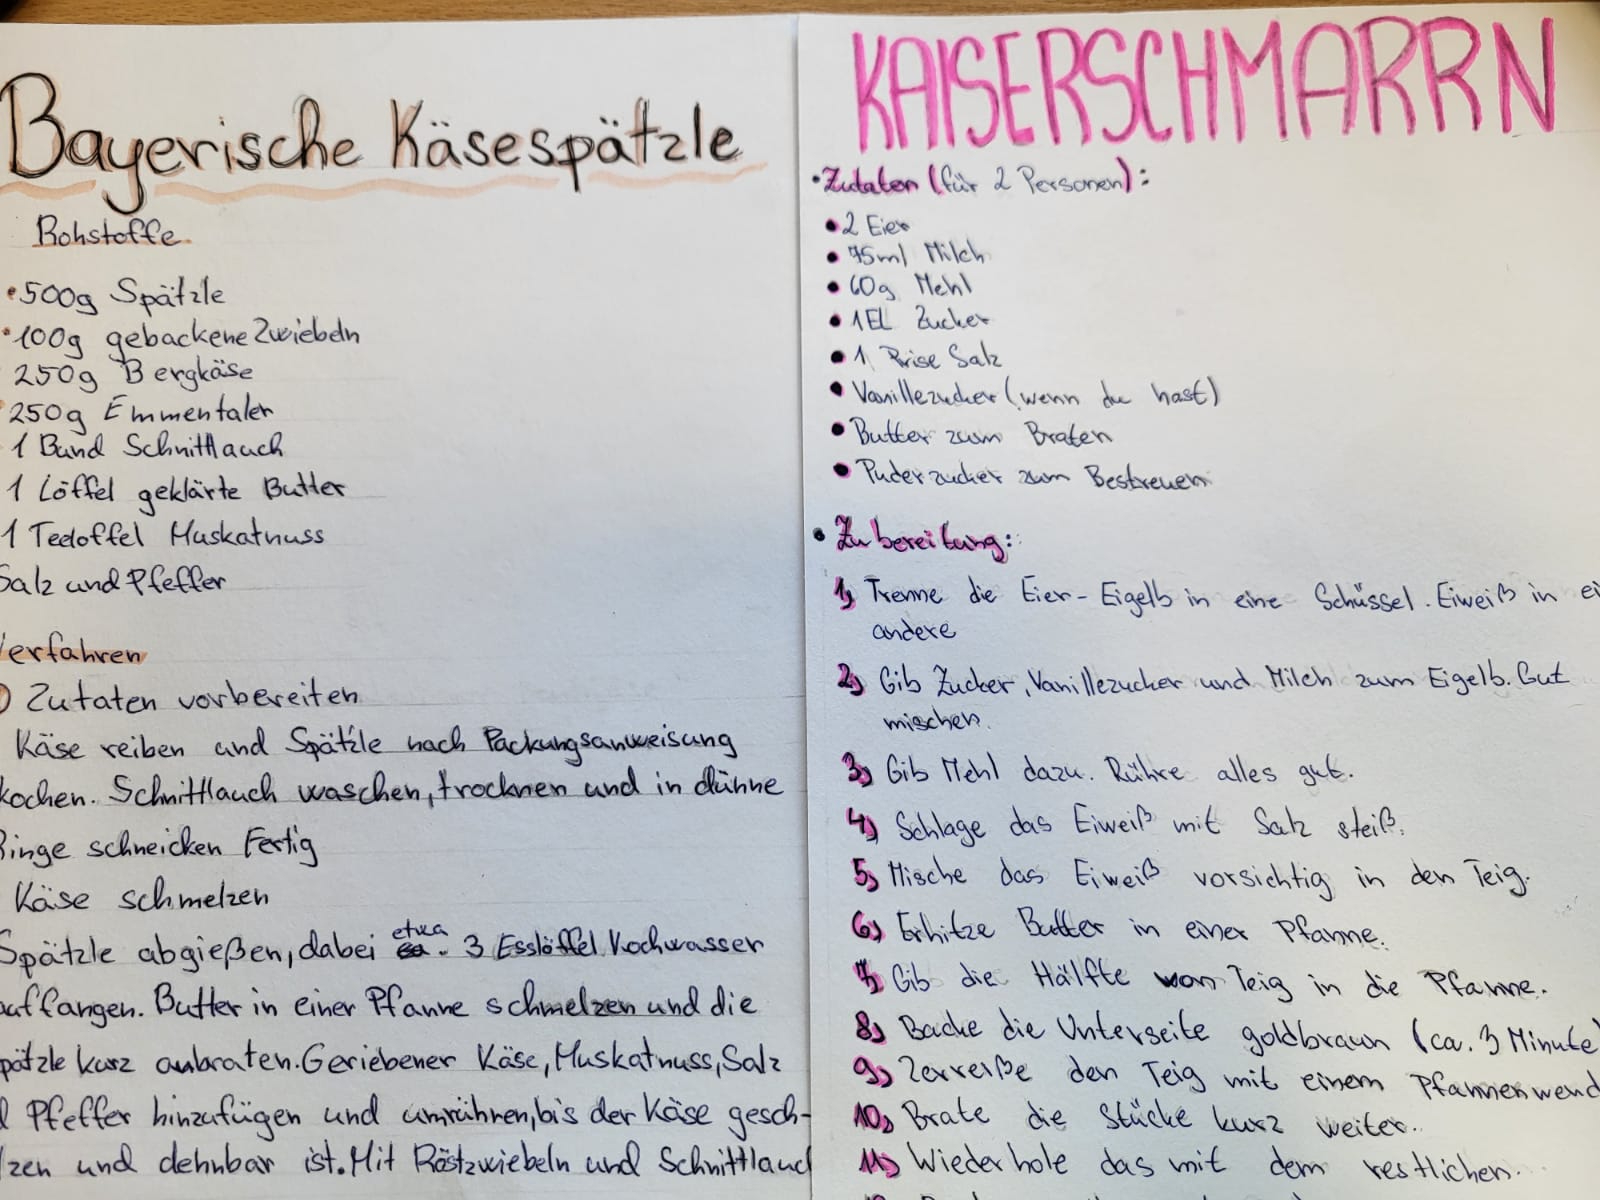 Bayerische Käsespätzle
Rohstoffe
•500g Spätzle
•100g gebackene Zwiebeln
250g Bergkäse
250g Emmentaler
1 Bund Schnittlauch
1 Löffel geklärte Butter
1 Teeloffel Muskatnuss
Salz und Pfeffer
Verfahren
Zutaten vorbereiten
Käse reiben und Spätzle nach Packungsanweisung
kochen. Schnittlauch waschen, trocknen und in dünne
Ringe schneicken Fertig
Käse schmelzen
Spätzle abgießen, dabei etwa. 3 Esslöffel Kochwasser
auffangen. Butter in einer Pfanne schmelzen und die
pätzle kurz anbraten. Geriebener Käse, Muskatnuss, Salz
d Pfeffer hinzufügen und umrühren, bis der Käse gesch-
lzen und dehnbar ist. Mit Röstzwiebeln und Schnittlauc
KAISERSCHMARRN
•Zutaten (für 2 Personen):
• 2 Eier
• 75ml Milch
• 60g Mehl
• 1EL Zucker
• 1 Prise Salz
• Vanillezucker (wenn du hast)
• Butter zum Braten
• Puderzucker zum Bestreuen
• Zubereitung:
1) Trenne die Eier - Eigelb in eine Schüssel. Eiweiß in ei
andere
2) Gib Zucker, Vanillezucker und Milch zum Eigelb. Gut
mischen.
3) Gib Mehl dazu. Rühre alles gut.
4) Schlage das Eiweiß mit Salz steiß.
5) Mische das Eiweiß vorsichtig in den Teig.
6) Erhitze Butter in einer Pfanne.
7) Gib die Hälfte von Teig in die Pfanne.
8) Backe die Unterseite goldbraun (ca. 3 Minute)
9) Zerreiße den Teig mit einem Pfannenwend
10) Brate die Stücke kurz weiter.
11) Wiederhole das mit dem restlichen.